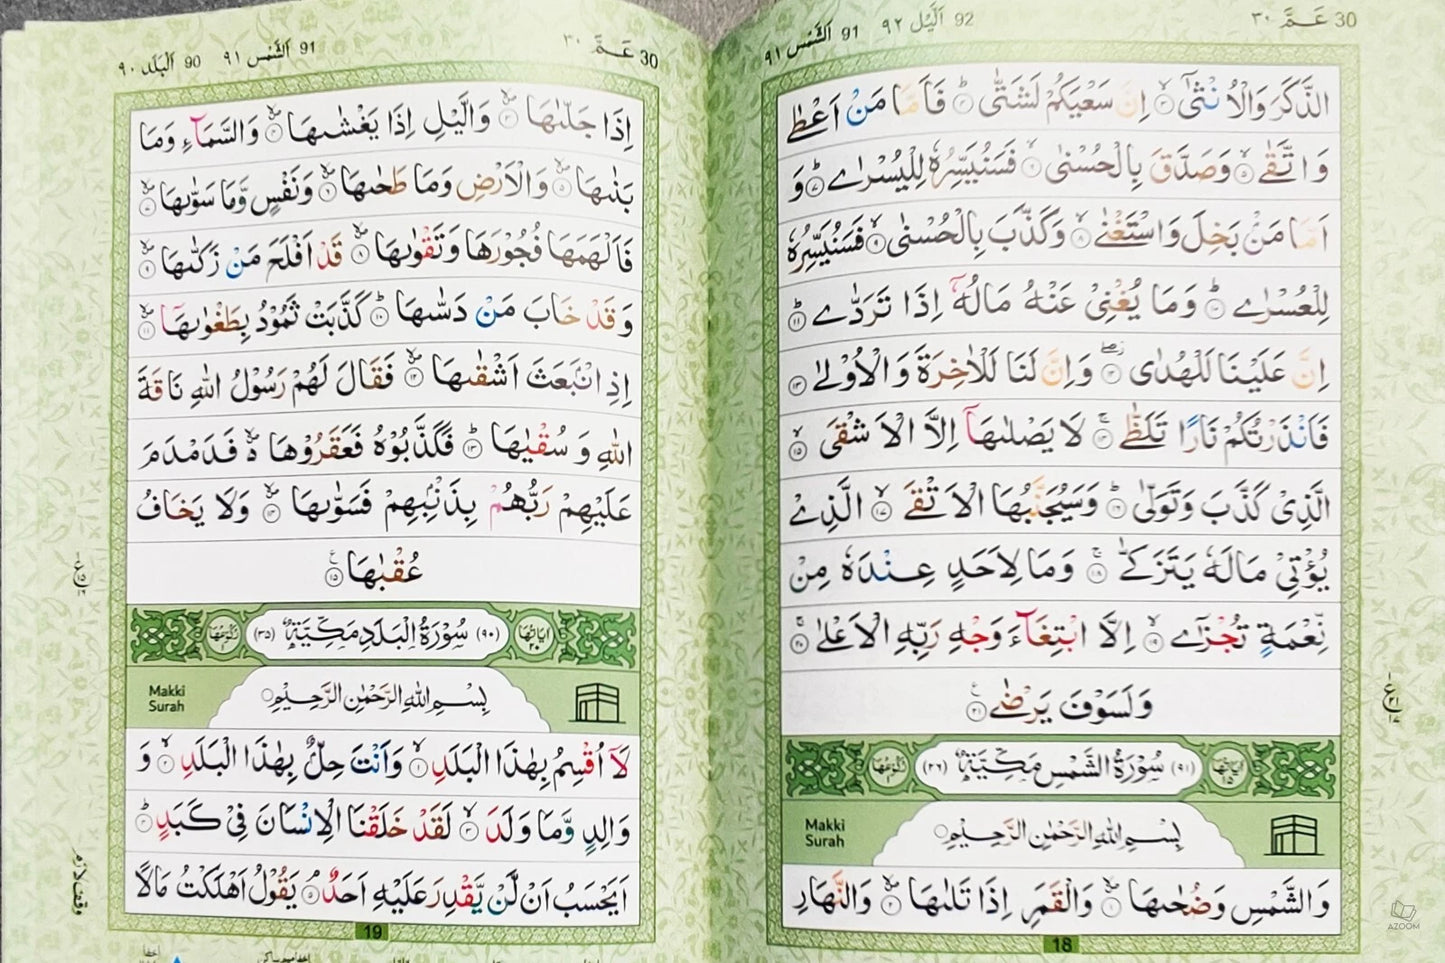 30 عَمَّ ٣٠
92 اَلَّيْل ٩٢
91 اَلشَّمْس ٩١
الذَّكَرَ وَالْاُنْثٰىٓ ۙ۝٣ اِنَّ سَعْيَكُمْ لَشَتّٰى ؕ۝٤ فَاَمَّا مَنْ اَعْطٰى
وَاتَّقٰى ۙ۝٥ وَصَدَّقَ بِالْحُسْنٰى ۙ۝٦ فَسَنُيَسِّرُهٗ لِلْيُسْرٰى ؕ۝٧ وَ
اَمَّا مَنْۢ بَخِلَ وَاسْتَغْنٰى ۙ۝٨ وَكَذَّبَ بِالْحُسْنٰى ۙ۝٩ فَسَنُيَسِّرُهٗ
لِلْعُسْرٰى ؕ۝١٠ وَمَا يُغْنِىْ عَنْهُ مَالُهٗٓ اِذَا تَرَدّٰى ؕ۝١١
اِنَّ عَلَيْنَا لَلْهُدٰى ۖ۝١٢ وَاِنَّ لَنَا لَلْاٰخِرَةَ وَالْاُوْلٰى ۝١٣
فَاَنْذَرْتُكُمْ نَارًا تَلَظّٰى ۚ۝١٤ لَا يَصْلٰىهَآ اِلَّا الْاَشْقَى ۙ۝١٥
الَّذِىْ كَذَّبَ وَتَوَلّٰى ؕ۝١٦ وَسَيُجَنَّبُهَا الْاَتْقَى ۙ۝١٧ الَّذِىْ
يُؤْتِىْ مَالَهٗ يَتَزَكّٰى ۚ۝١٨ وَمَا لِاَحَدٍ عِنْدَهٗ مِنْ
نِّعْمَةٍ تُجْزٰٓى ۙ۝١٩ اِلَّا ابْتِغَآءَ وَجْهِ رَبِّهِ الْاَعْلٰى ۚ۝٢٠
وَلَسَوْفَ يَرْضٰى ۝٢١
اٰيَاتُهَا ١٥ (٩١) سُوْرَةُ الشَّمْسِ مَكِّيَّةٌ (٢٦) رُكُوْعُهَا ١
بِسْمِ اللهِ الرَّحْمٰنِ الرَّحِيْمِ
Makki
Surah
وَالشَّمْسِ وَضُحٰىهَا ۙ۝١ وَالْقَمَرِ اِذَا تَلٰىهَا ۙ۝٢ وَالنَّهَارِ
18
30 عَمَّ ٣٠
91 اَلشَّمْس ٩١
90 اَلْبَلَد ٩٠
اِذَا جَلّٰىهَا ۙ۝٣ وَالَّيْلِ اِذَا يَغْشٰىهَا ۙ۝٤ وَالسَّمَآءِ وَمَا
بَنٰىهَا ۙ۝٥ وَالْاَرْضِ وَمَا طَحٰىهَا ۙ۝٦ وَنَفْسٍ وَّمَا سَوّٰىهَا ۙ۝٧
فَاَلْهَمَهَا فُجُوْرَهَا وَتَقْوٰىهَا ۙ۝٨ قَدْ اَفْلَحَ مَنْ زَكّٰىهَا ۙ۝٩
وَقَدْ خَابَ مَنْ دَسّٰىهَا ؕ۝١٠ كَذَّبَتْ ثَمُوْدُ بِطَغْوٰىهَآ ۙ۝١١
اِذِ انْۢبَعَثَ اَشْقٰىهَا ۙ۝١٢ فَقَالَ لَهُمْ رَسُوْلُ اللهِ نَاقَةَ
اللهِ وَسُقْيٰهَا ؕ۝١٣ فَكَذَّبُوْهُ فَعَقَرُوْهَا ۙ فَدَمْدَمَ
عَلَيْهِمْ رَبُّهُمْ بِذَنْۢبِهِمْ فَسَوّٰىهَا ۙ۝١٤ وَلَا يَخَافُ
عُقْبٰهَا ۝١٥
اٰيَاتُهَا ٢٠ (٩٠) سُوْرَةُ الْبَلَدِ مَكِّيَّةٌ (٣٥) رُكُوْعُهَا ١
بِسْمِ اللهِ الرَّحْمٰنِ الرَّحِيْمِ
Makki
Surah
لَآ اُقْسِمُ بِهٰذَا الْبَلَدِ ۙ۝١ وَاَنْتَ حِلٌّۢ بِهٰذَا الْبَلَدِ ۙ۝٢ وَ
وَالِدٍ وَّمَا وَلَدَ ۙ۝٣ لَقَدْ خَلَقْنَا الْاِنْسَانَ فِىْ كَبَدٍ ؕ۝٤
اَيَحْسَبُ اَنْ لَّنْ يَّقْدِرَ عَلَيْهِ اَحَدٌ ۘ۝٥ يَقُوْلُ اَهْلَكْتُ مَالًا
19
وقف لازم
AZOOM